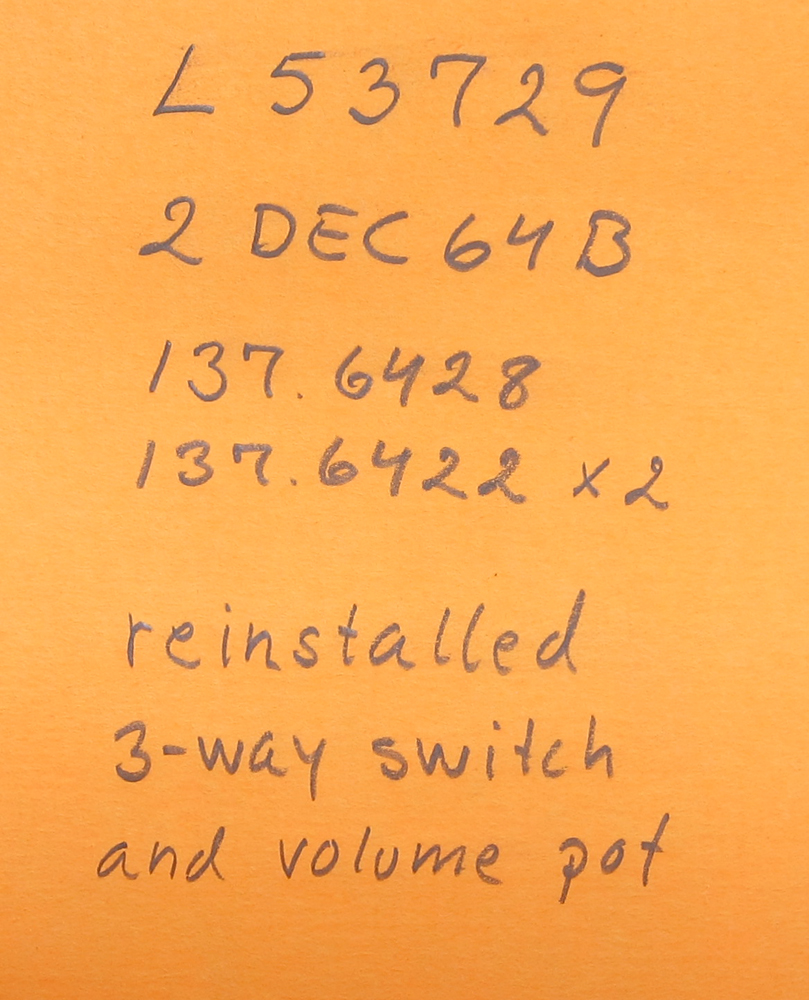 L 53729
2 DEC 64 B
137.6428
137.6422 x 2
reinstalled
3-way switch
and volume pot